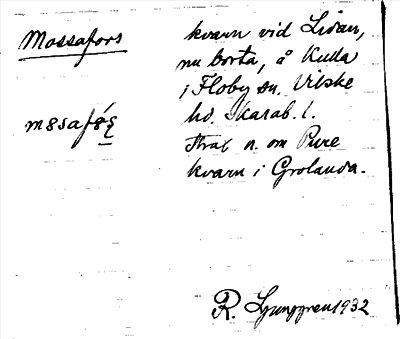 Mossafors
kvarn vid Lidan,
nu borta, å Kulla
i Floby sn. Vilske
hd. Skarab. l.
strax n. om Pure
kvarn i Grolanda.
R. Ljunggren 1932